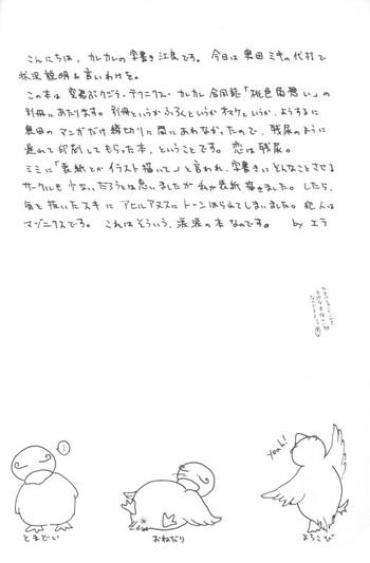 こんにちは、カレカレの字書き江良でる。今日は奥田ミキの代打で
状況説明&言いわけを。
この本は 空夢ぶクゴラ・テクニクス・カレカレ 合同誌「桃色
別冊にあたります。別冊というかふろくというかオマケというか、ようするに
奥田のマンガだけ締切りに間にあわなかったので、残尿のように
遅れて印刷してもらった本、ということです。恋は残尿。
ミミに「表紙とかイラスト描いて」と言われ、字書きにどんなことさせる
サークルも少ないだろうとは思いましたが私が表紙描きました。したら、
気を抜いたスキにアヒルアヌスにトーンはられてしまいました。犯人は
マゾニクスでる。これはそういう、涙涙の本なのです。 by エラ
Yeah!
とまどい
おねだり
よろこび